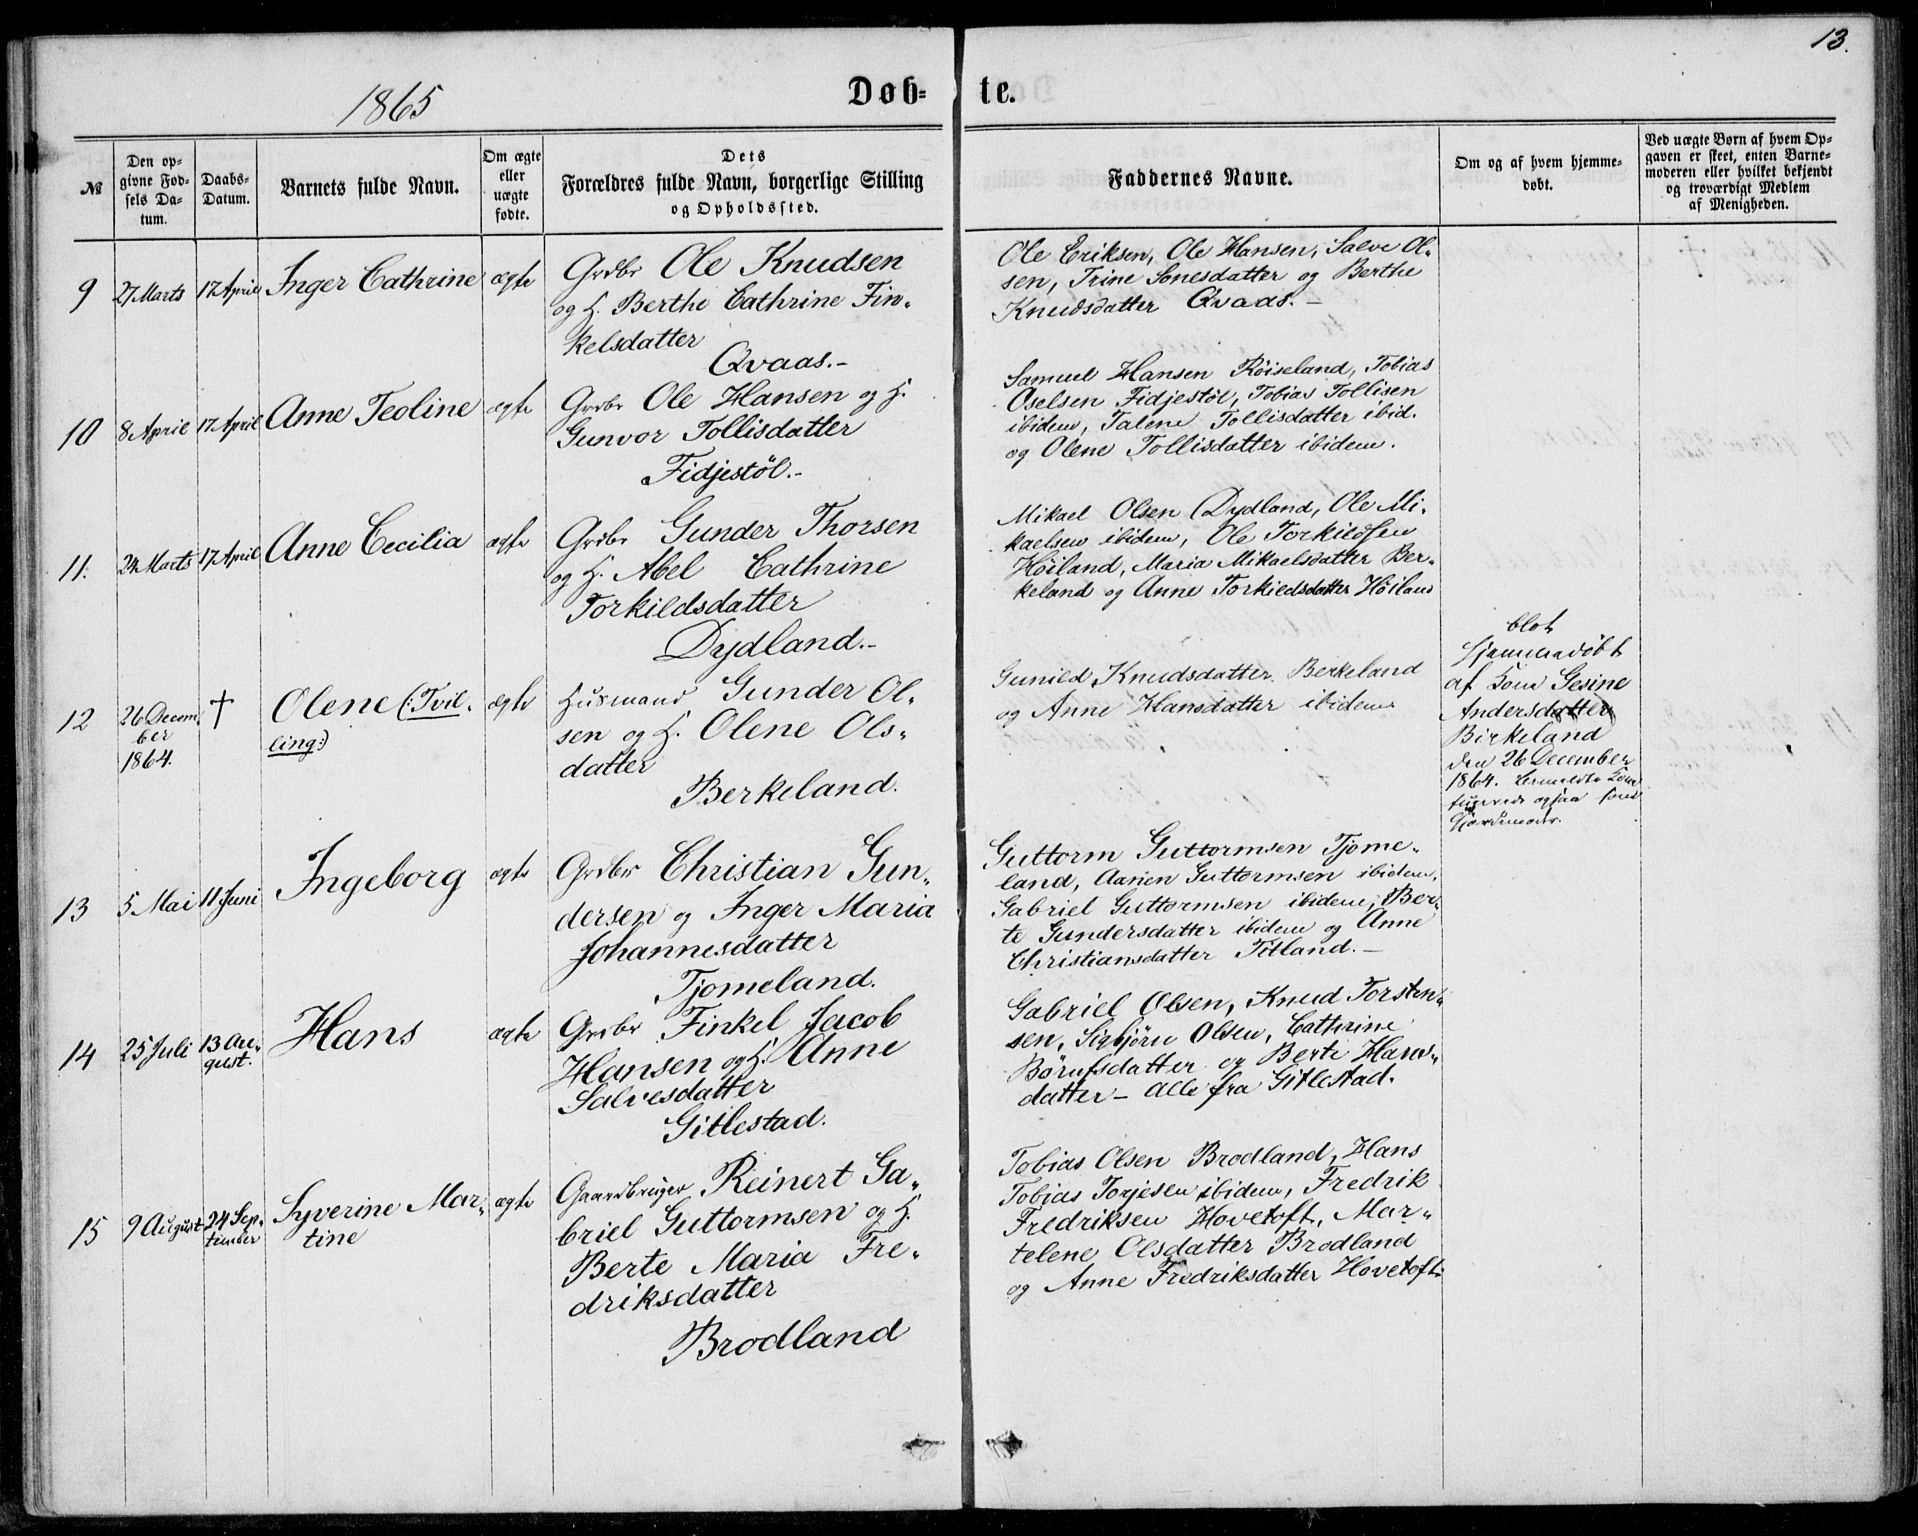 13.
1865
Døb- te.
№
Den op-
givne Fød-
sels Da-
tum.
Daabs-
Datum.
Barnets fulde Navn.
Om ægte
eller
uægte
fødte.
Dets
Forældres fulde Navn, borgerlige Stilling
og Opholdssted.
Faddernes Navne.
Om og af hvem hjemme-
døbt.
Ved uægte Børn af hvem Op-
gaven er skeet, enten Barne-
moderen eller hvilket bekjendt
og troværdigt Medlem
af Menigheden.
9
27 Marts
17 April
Inger Cathrine
ægte
Grdbr Ole Knudsen
og H. Berthe Cathrine Fin-
kelsdatter
Qvaas.-
Ole Eriksen, Ole Hansen, Salve Ol-
sen, Trine Sonesdatter og Berthe
Knudsdatter Qvaas.-
10
8 April
17 April
Anne Teoline
ægte
Grdbr Ole Hansen og H.
Gunvor Tollisdatter
Fidjestöl.-
Samuel Hansen Röiseland, Tobias
Oselsen Fidjestöl, Tobias Tollisen
ibidem, Talene Tollisdatter ibid.
og Olene Tollisdatter ibidem.
11.
24 Marts
17 April
Anne Cecilia
ægte
Grdbr Gunder Thorsen
og H. Abel Cathrine
Torkildsdatter
Dydland.-
Mikael Olsen Dydland, Ole Mi-
kaelsen ibidem, Ole Torkildsen
Höiland, Maria Mikaelsdatter Ber-
keland og Anne Torkieldsdatter Höiland
12
26 Decem-
ber
1864.
†
Olene (: Tvil-
ling:)
ægte
Husmand Gunder Ol-
sen og H. Olene Ols-
datter
Berkeland.
Gunild Knudsdatter Berkeland
og Anne Hansdatter ibidem
blot
hjemmedöbt
af Gesine
Andersdatter
Birkeland
den 26 December
1864.
13
5 Mai
11 Juni
Ingeborg
ægte
Grdbr Christian Gun-
dersen og Inger Maria
Johannesdatter
Tjomeland.
Guttorm Guttormsen Tjome-
land, Aanen Guttormsen ibidem,
Gabriel Guttormsen ibidem, Ber-
te Gundersdatter ibidem og Anne
Christiansdatter Titland.-
14
25 Juli
13 Au-
gust.
Hans
ægte
Grdbr Finkel Jacob
Hansen og H. Anne
Salvesdatter
Gitlestad.
Gabriel Olsen, Knud Torsten-
sen, Sigbjörn Olsen, Cathrine
Börufsdatter og Berte Hans-
datter - alle fra Gitlestad.
15
9 August
24 Sep-
tember
Syverine Mar-
tine
ægte
Gaardbruger Reinert Ga-
briel Guttormsen og H.
Berte Maria Fre-
driksdatter
Brodland
Tobias Olsen Brodland, Hans
Tobias Torjesen ibidem, Fredrik
Fredriksen Hovetoft, Mar-
telene Olsdatter Brodland
og Anne Fredriksdatter Hovetoft.